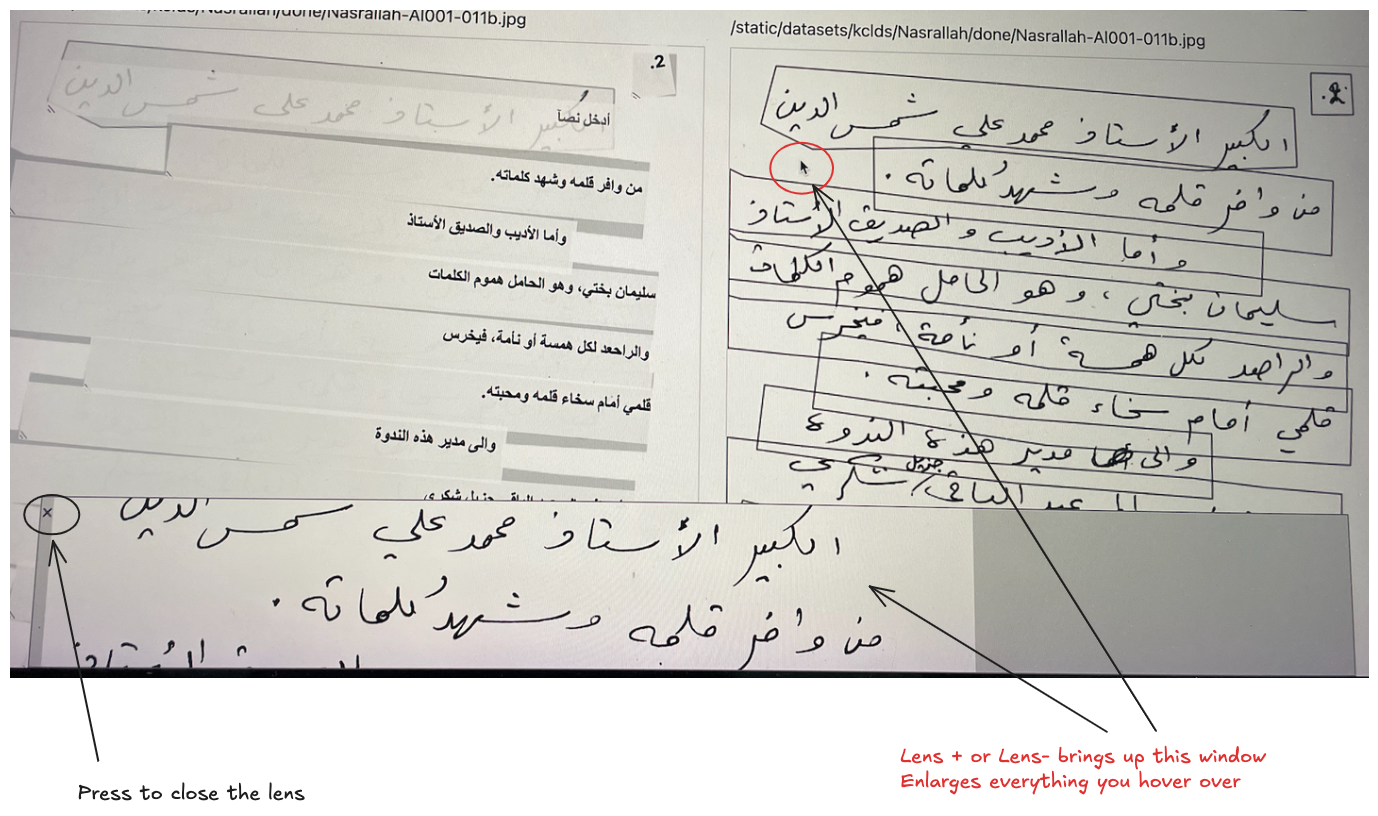 /kclds/Nasrallah/done/Nasrallah-AI001-011b.jpg
.2
الكبير الأستاذ محمد علي شمس الدين
أدخل نصآ
من وافر قلمه وشهد كلماته.
وأما الأديب والصديق الأستاذ
سليمان بختي، وهو الحامل هموم الكلمات
والراحعد لكل همسة أو نأمة، فيخرس
قلمي أمام سخاء قلمه ومحبته.
والى مدير هذه الندوة
/static/datasets/kclds/Nasrallah/done/Nasrallah-AI001-011b.jpg
.2.
الكبير الأستاذ محمد علي شمس الدين
من وافر قلمه وشهد كلماته.
وأما الأديب والصديق الأستاذ
سليمان بختي، وهو الحامل هموم الكلمات
والراصد لكل همسة أو نأمة، فيخرس
قلمي أمام سخاء قلمه ومحبته.
والى مدير هذه الندوة
×
الكبير الأستاذ محمد علي شمس الدين
من وافر قلمه وشهدُ كلماته.
Lens + or Lens- brings up this window
Enlarges everything you hover over
Press to close the lens